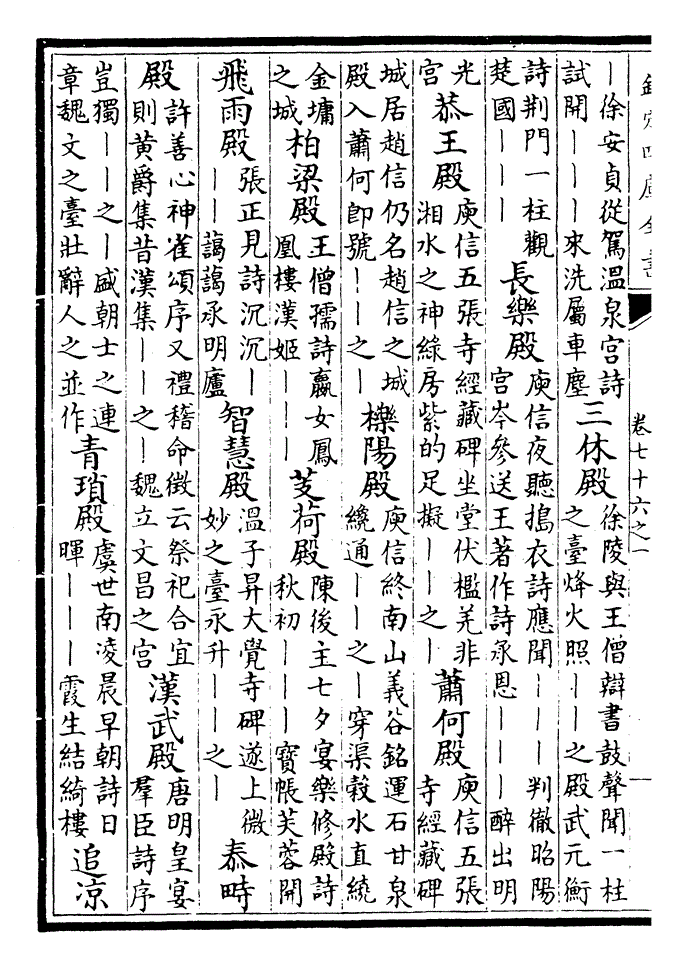 欽定四庫全書
卷七十六之一
｜徐安貞從駕溫泉宮詩
試開｜｜｜來洗屬車塵
三休殿
徐陵與王僧辯書鼓聲聞一柱
之臺烽火照｜｜之殿武元衡
詩荆門一柱觀
楚國｜｜｜
長樂殿
庾信夜聽搗衣詩應聞｜｜｜判徹昭陽
宮岑參送王著作詩承恩｜｜｜醉出明
光
宮
恭王殿
庾信五張寺經藏碑坐堂伏檻羌非
湘水之神綠房紫的足擬｜｜之｜
蕭何殿
庾信五張
寺經藏碑
城居趙信仍名趙信之城
殿入蕭何即號｜｜之｜
櫟陽殿
庾信終南山義谷銘運石甘泉
繞通｜｜之｜穿渠榖水直繞
金墉
之城
柏梁殿
王僧孺詩嬴女鳳
凰樓漢姬｜｜｜
芰荷殿
陳後主七夕宴樂修殿詩
秋初｜｜｜寳帳芙蓉開
飛雨殿
張正見詩沉沉｜
｜｜藹藹承明廬
智慧殿
溫子昇大覺寺碑遂上微
妙之臺永升｜｜之｜
泰畤
殿
許善心神雀頌序又禮稽命徵云祭祀合宜
則黄爵集昔漢集｜｜之｜魏立文昌之宮
漢武殿
唐明皇宴
羣臣詩序
豈獨｜｜之｜盛朝士之連
章魏文之臺壯辭人之並作
青瑣殿
虞世南凌晨早朝詩日
暉｜｜｜霞生結綺樓
追凉